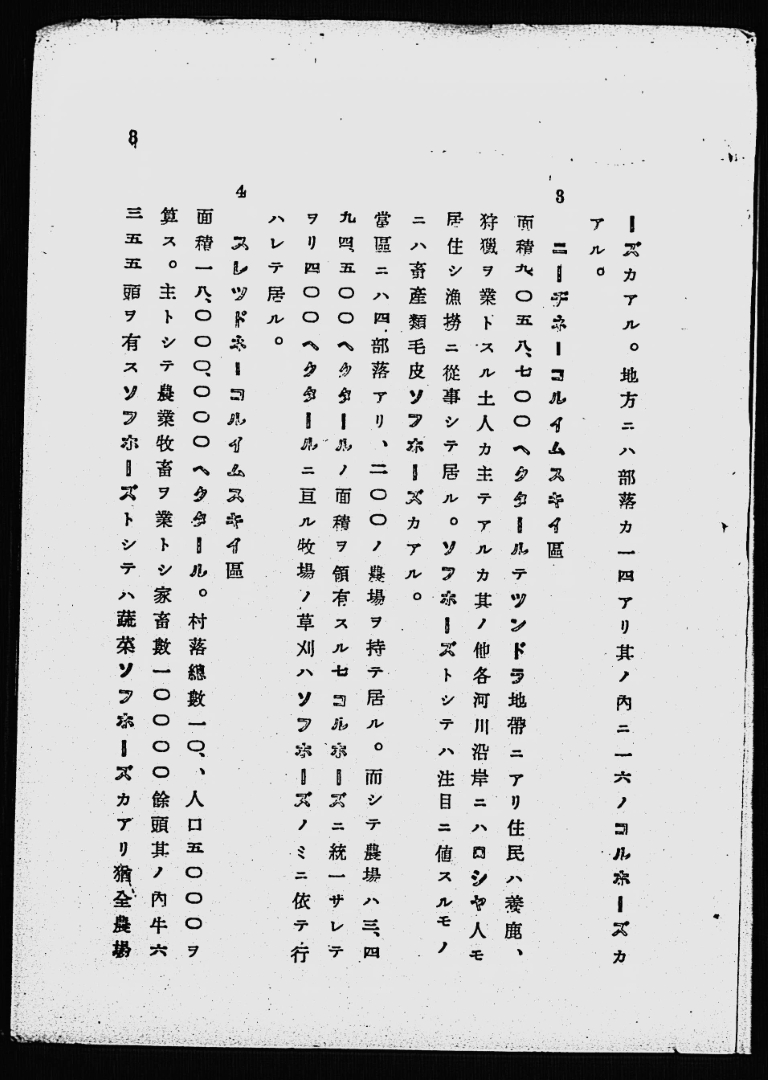 ーズカアル。地方ニハ部落カ一四アリ其ノ內ニ一六ノコルホーズカ
アル。
3 ニーヂネーコルイムスキイ區
面積九〇五八、七〇〇ヘクタールテツンドラ地帶ニアリ住民ハ養鹿、
狩獵ヲ業トスル土人カ主テアルカ其ノ他各河川沿岸ニハロシヤ人モ
居住シ漁撈ニ從事シテ居ル。ソフホーズトシテハ注目ニ値スルモノ
ニハ畜產類毛皮ソフホーズカアル。
當區ニハ四部落アリ、二〇〇ノ農場ヲ持テ居ル。而シテ農場ハ三、四
九四、五〇〇ヘクタールノ面積ヲ領有スル七コルホーズニ統一サレテ
ヲリ四〇〇ヘクタールニ亘ル牧場ノ草刈ハソフホーズノミニ依テ行
ハレテ居ル。
4 スレツドネーコルイムスキイ區
面積一八、〇〇〇、〇〇〇ヘクタール。村落總數一〇、、人口五〇〇〇ヲ
算ス。主トシテ農業牧畜ヲ業トシ家畜數一〇〇〇〇餘頭其ノ內牛六
三五五頭ヲ有スソフホーズトシテハ蔬菜ソフホーズカアリ猶全農場
8